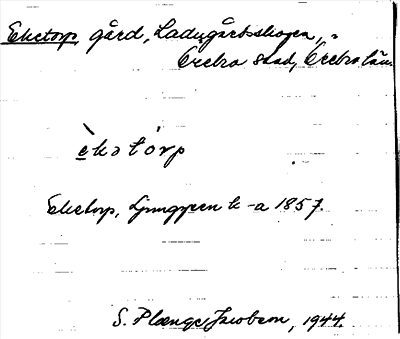 Ekctorp, gård, Ladugårdsskogen,
Örebro stad, Örebro län.
èkətórp
Ekctorp, Ljunggren k -a 1857.
S. Plænge Jacobson, 1944.